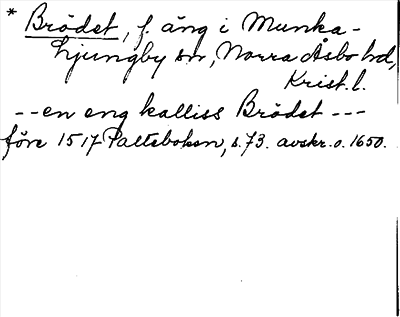 * Brödet, f. äng i Munka-
Ljungby sn, Norra Åsbo hd,
Krist. l.
-- en eng kalliss Brödet ---
före 1517 Palteboken, s. 73. avskr. o. 1650.